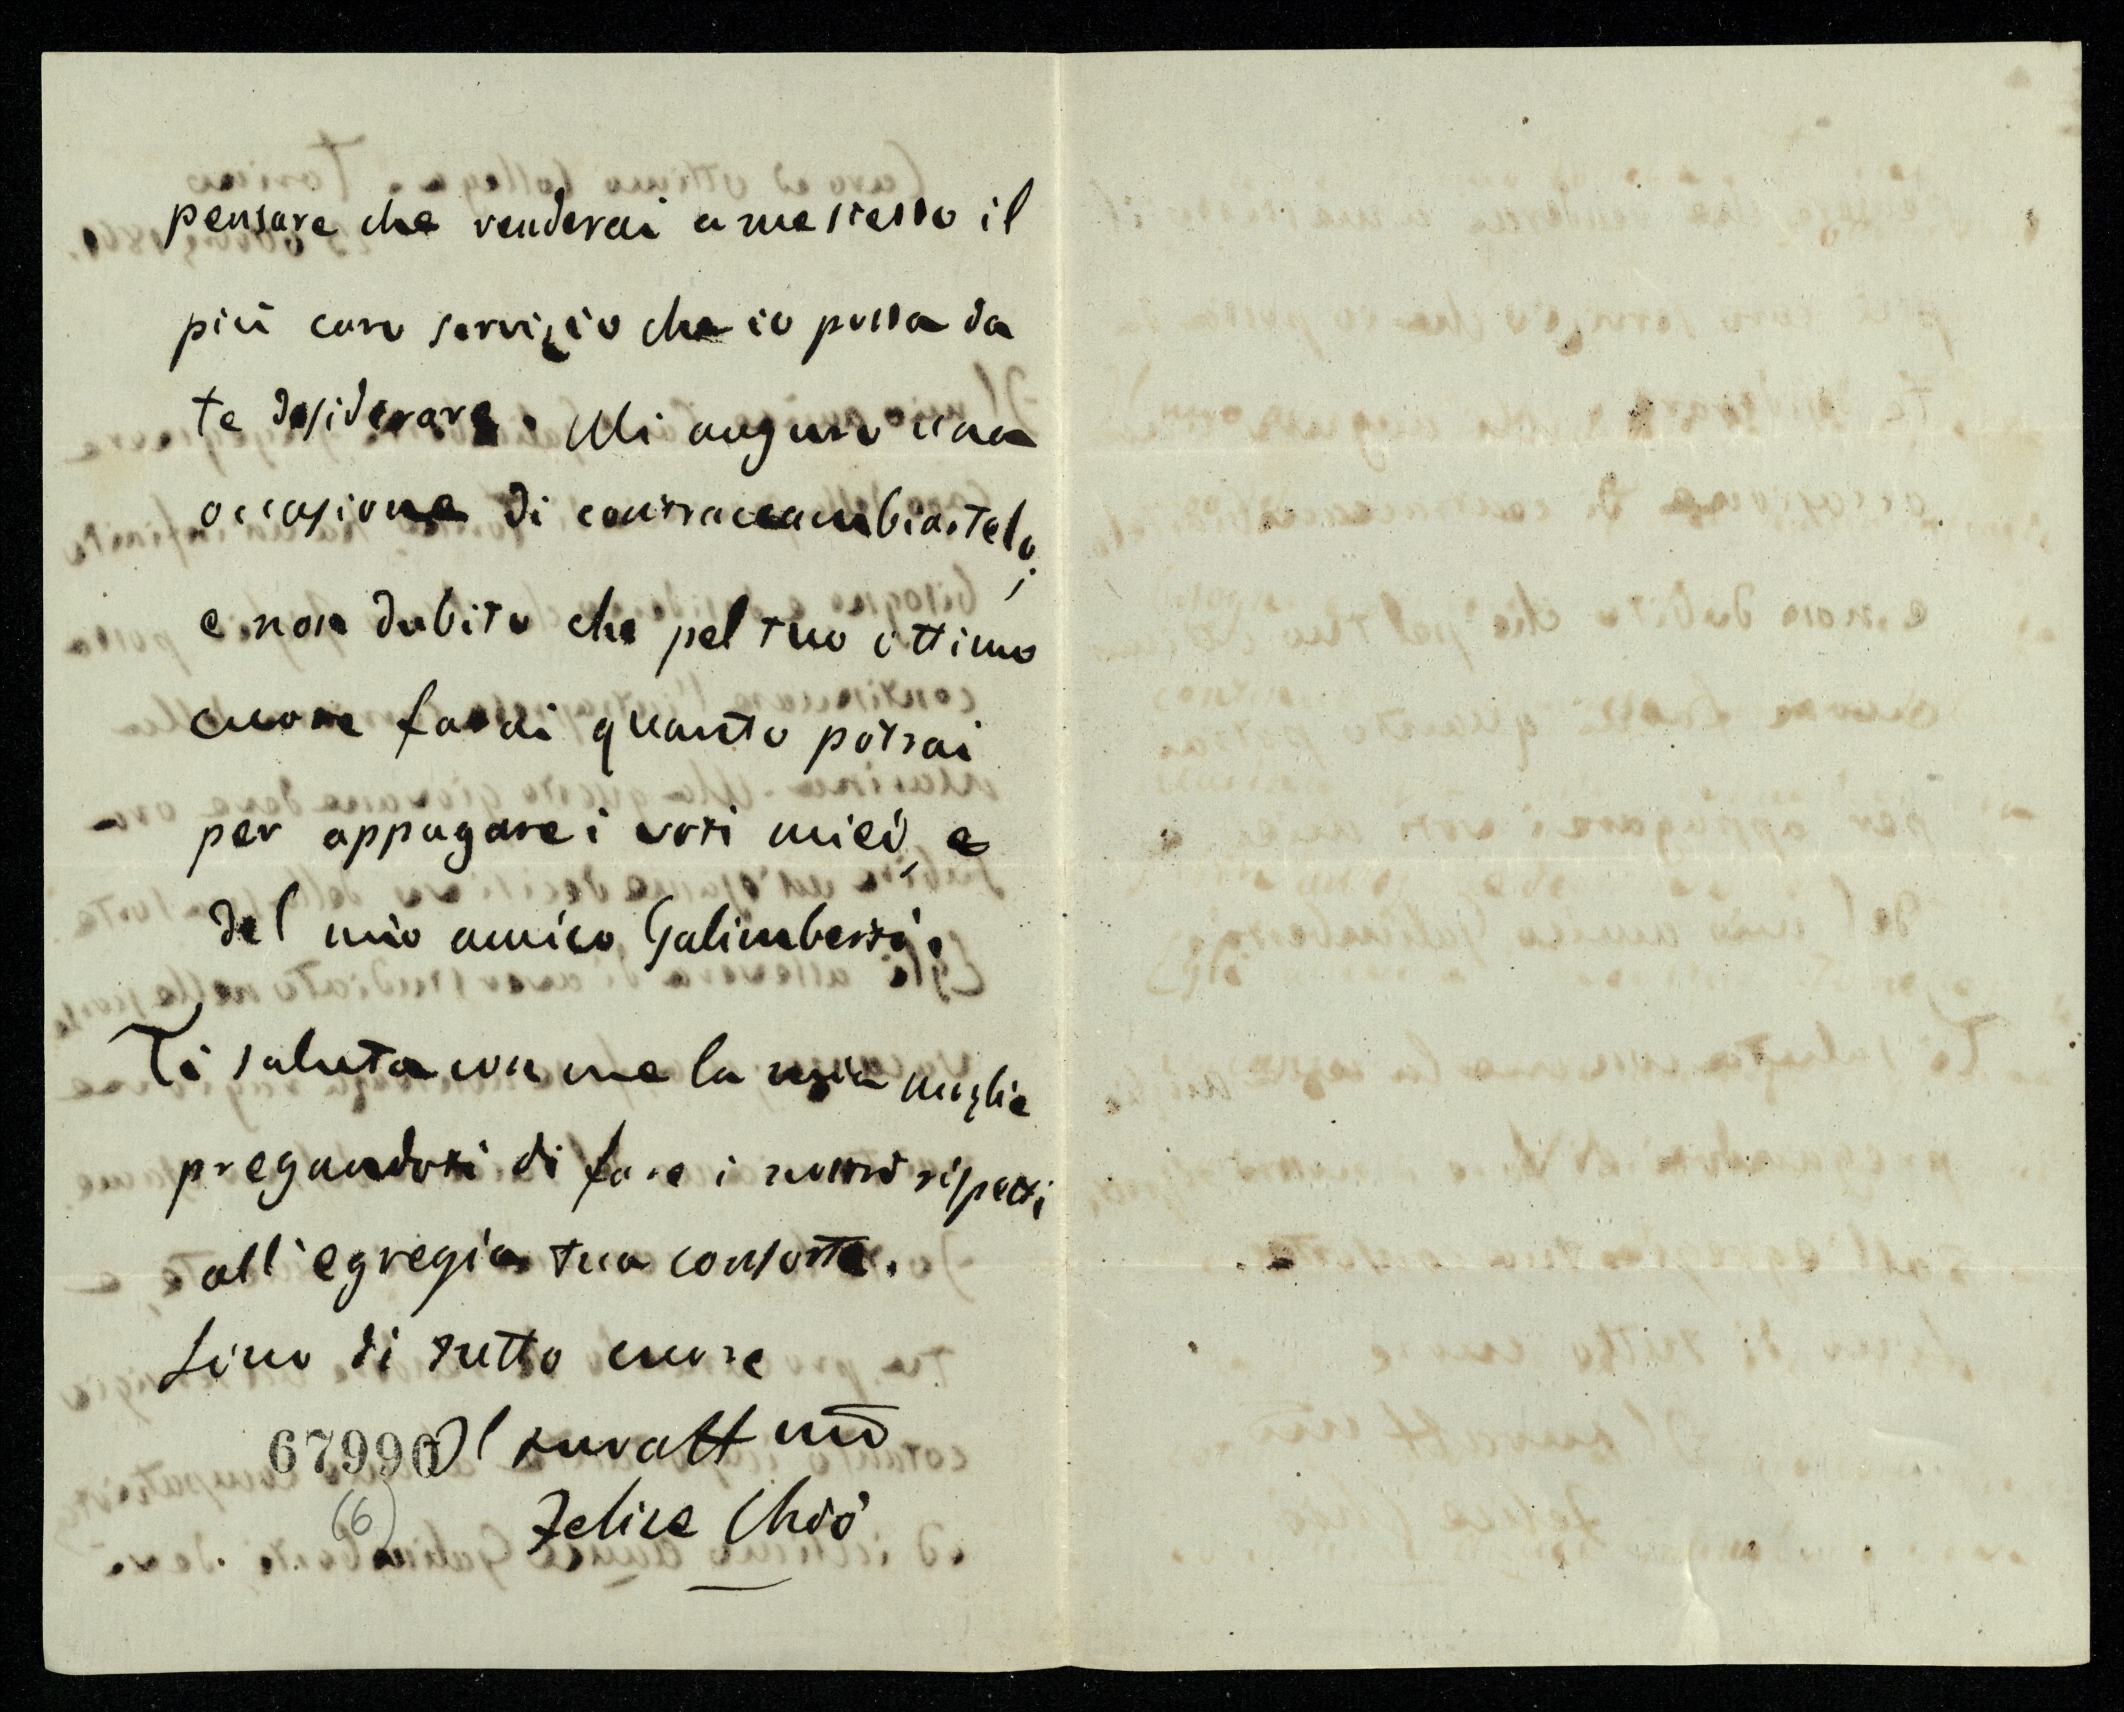 pensare che renderai a me stesso il
più caro servizio che io possa da
te desiderare. Mi auguro una
occasione di contraccambiartelo;
e non dubito che pel tuo ottimo
cuore farai quanto potrai
per appagare i voti miei, e
del mio amico Galimberti.
Ti saluta con me la mia moglie
pregandoti di fare i nostri rispetti
all'egregia tua consorte.
Sono di tutto cuore
67990 Il tuo aff mo
(6) Felice Chiò